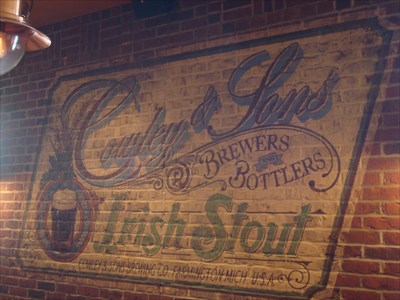 Cowley & Sons
BREWERS AND BOTTLERS
Irish Stout
COWLEY & SONS BREWING CO. FARMINGTON MICH. U.S.A.